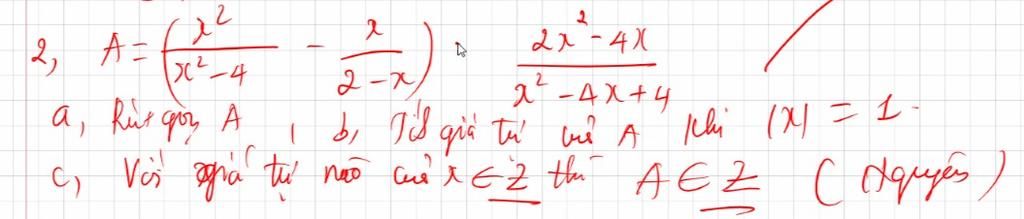 2, A = (x²/(x² - 4) - x/(2 - x)) · (2x² - 4x)/(x² - 4x + 4)
a, Rút gọn A, b, Tìm giá trị của A khi |x| = 1.
c, Với giá trị nào của x ∈ Z thì A ∈ Z (nguyên)